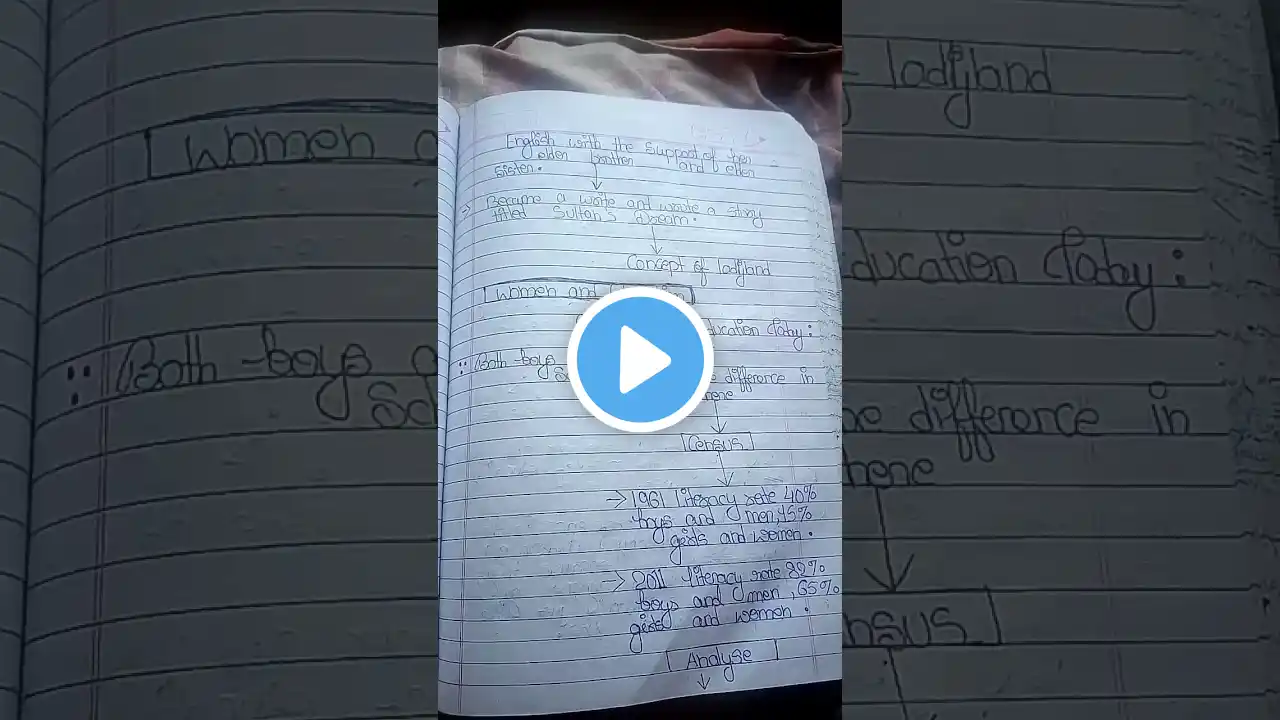 English with the support of her
elder brother and elder
sister.
Became a write and wrote a story
titled Sultan's Dream.
Concept of ladyland
Women and
ducation Today:
Both boys
difference in
here
Census
→ 1961 literacy rate 40%
boys and men, 15%
girls and women.
→ 2011 literacy rate 82%
boys and men, 65%
girls and women.
Analyse